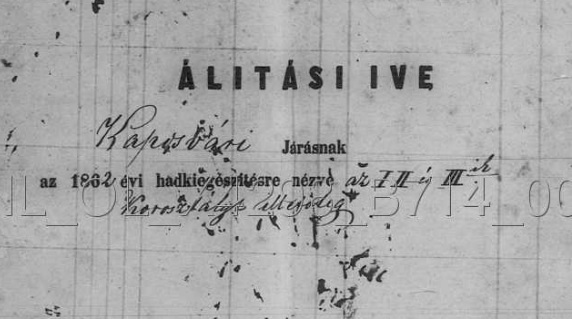 ÁLITÁSI IVE
Kaposvári Járásnak
az 1862 évi hadkiegészitésre nézve az I II és III ik
Korosztályt illetőleg